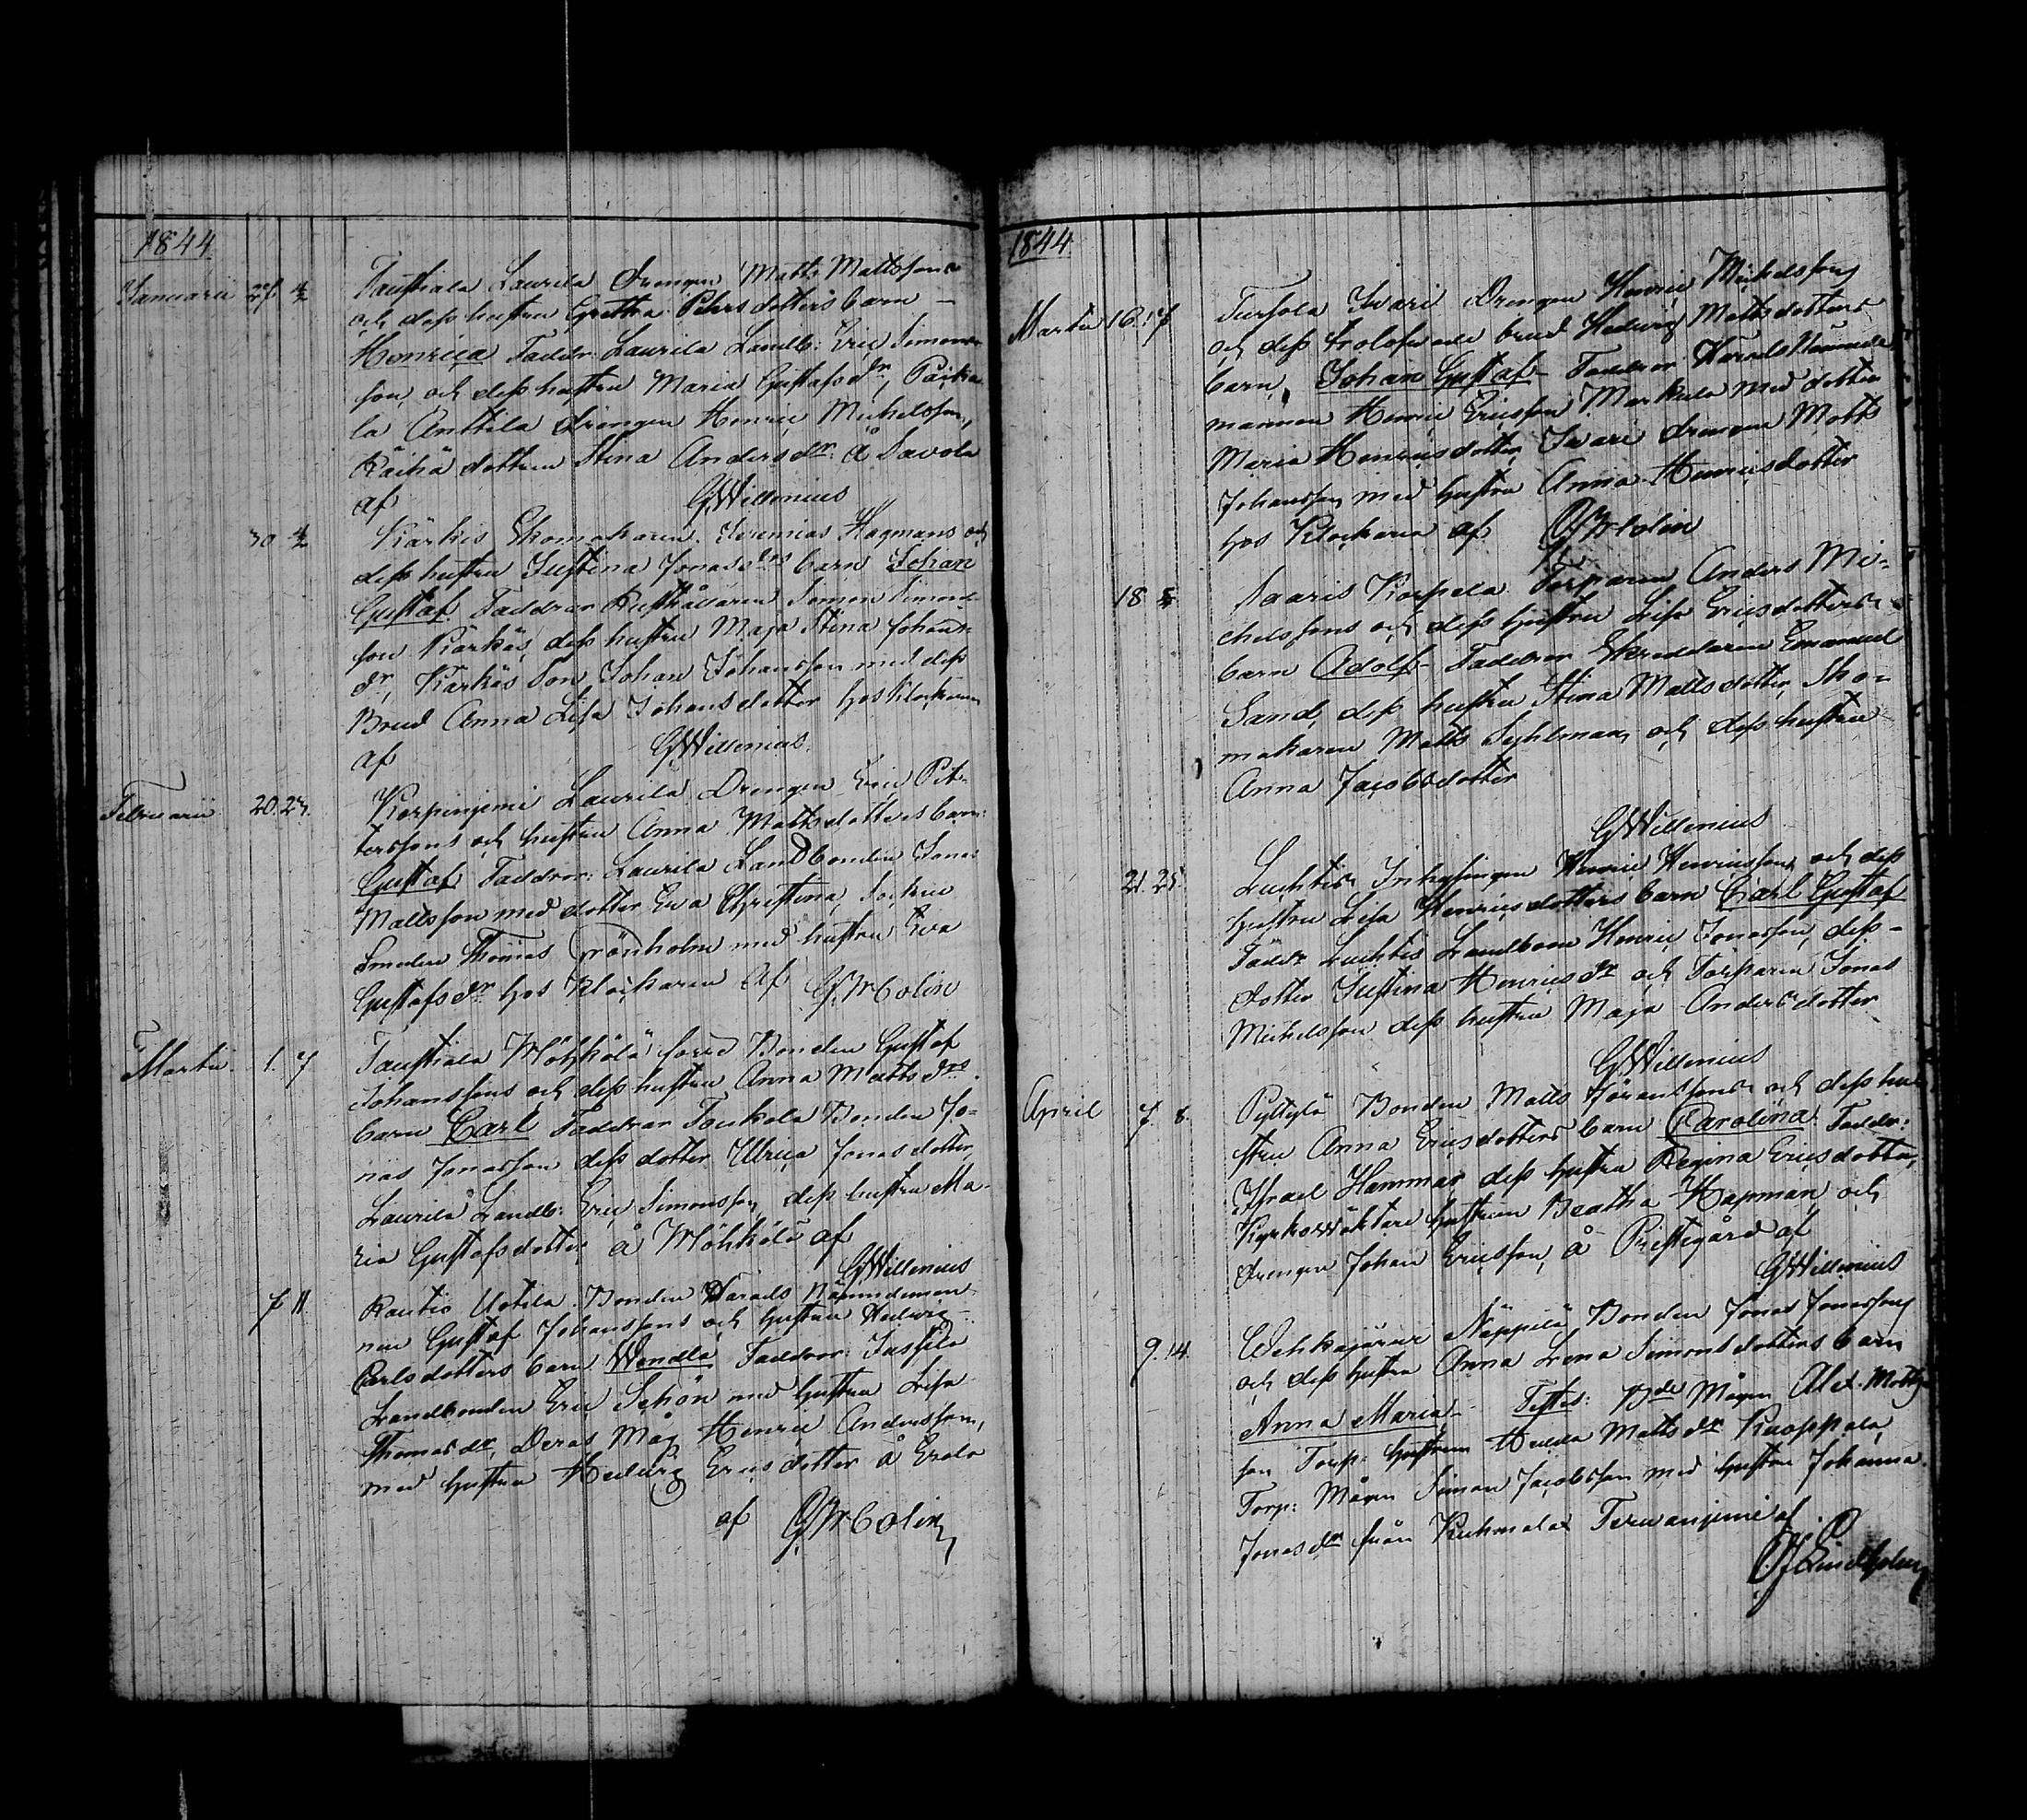 1844
Januarii 28 4/2 Taustiala Laurila Drengen Matts Mattssons
och dess hustru Gretha Pehrsdotters barn –
Henrica Faddr: Laurila Landb: Eric Simons-
son, och dess hustru Maria Gustafsdr, Paika-
la Anttila drengen Henric Michelsson,
Räihä dottren Stina Andersdr: å Savola
af GWillenius
30 4/2 Kärkis Skomakaren Jeremias Hagmans och
dess hustru Justina Jonasdrs barn Johan
Gustaf Faddrar Rusthållaren Simon Simons-
son Kärkäs, dess hustru Maja Stina Johans-
dr, Kärkäs Son Johan Johansson med dess
Brud Anna Lisa Johansdotter hos Klockaren
af GWillenius
Februarii 20. 23. Korpiniemi Laurila Drengen Eric Pet-
terssons och hustru Anna Mattsdotters barn:
Gustaf Faddrar: Laurila Landbonden Jonas
Mattsson med dotter Eva Christina, Sockne
Smeden Thomas Grönholm med hustru Eva
Gustafsdr hos Klockaren af GWColin
Martii 1. 3 Taustiala Möhkölä förre Bonden Gustaf
Johanssons och dess hustru Anna Mattsdrs
barn Carl Faddrar Toukola Bonden Jo-
nas Jonasson dess dotter Ulrica Jonasdotter,
Laurila Landb: Eric Simonsson, dess hustru Ma-
ria Gustafsdotter å Möhkölä af
GWillenius
7 11. Rautio Uotila Bonden Härads Nämndeman-
nen Gustaf Johanssons och hustru Hedwig
Carlsdotters barn Wendla Faddrar: Jussila
Landbonden Eric Schön med hustru Lisa
Thomasdr, Deras Måg Henric Andersson,
med hustru Hedwig Ericsdotter å Erola
af GWColin
1844
Martii 16. 17 Tursola Iwari Drengen Henric Michelssons
och dess trolofwade brud Hedwig Mattsdotters
barn, Johan Gustaf – Faddrar Härads Nämnde-
mannen Henric Ericsson Markula med dotter
Maria Henricsdotter, Iwari drengen Matts
Johansson med hustru Anna Henricsdotter
hos Klockaren af GWColin
18 Saaris Korpela Torparen Anders Mi-
chelssons och dess hustru Lisa Ericsdotters
barn Adolf – Faddrar Skreddaren Emanuel
Sand, dess hustru Stina Mattsdotter, Sko-
makaren Matts Sehlman, och dess hustru
Anna Jacobsdotter
GWillenius
21. 25. Luchtis Inhysingen Henric Henricssons och dess
hustru Lisa Henricsdotters barn Carl Gustaf
Faddr Luchtis Landboen Henric Jonasson, dess
dotter Justina Henricsdr och Torparen Jonas
Michelsson dess hustru Maja Andersdotter
GWillenius
April 7. 8. Pyttylä Bonden Matts Göranssons och dess hu-
stru Anna Ericsdotters barn Carolina Faddr:
Israel Hammar dess hustru Regina Ericsdotter,
Kyrkowäktare hustrun Beatha Hapman, och
drengen Johan Ericsson, å Prestegård af
GWillenius
9. 14. Wehkajärwi Näppilä Bonden Jonas Jonassons
och dess hustru Anna Lena Simonsdotters barn
Anna Maria – Testes: Bde Mågen Alex. Matts-
son Torp: hustrun Hedda Mattsdr Knoppala,
Torp: Mågen Simon Jacobsson med hustru Johanna
Jonasdr från Kuhmalax Terwaniemi af
Lindholm